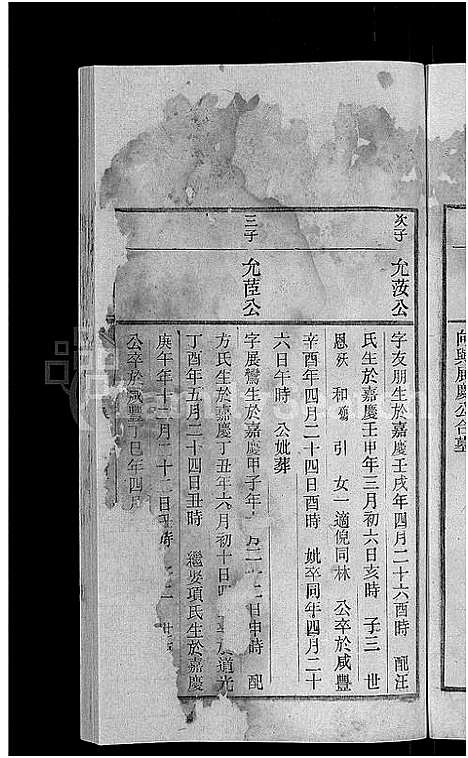 次子
允汝公
字友朋生於嘉慶壬戌年四月二十六酉時 配汪
氏生於嘉慶壬甲年三月初六日亥時 子三 世
恩 和 引 女一適倪同林 公卒於咸豐
辛酉年四月二十四日酉時 妣卒同年四月二十
六日午時 公妣葬
三子
允茝公
字展鸞生於嘉慶甲子年 月二十二日申時 配
方氏生於嘉慶丁丑年六月初十日 於道光
丁酉年五月二十四日丑時 繼娶項氏生於嘉慶
庚午年十二月二十二日 時
公卒於咸豐丁巳年四月
向與展慶公合墓